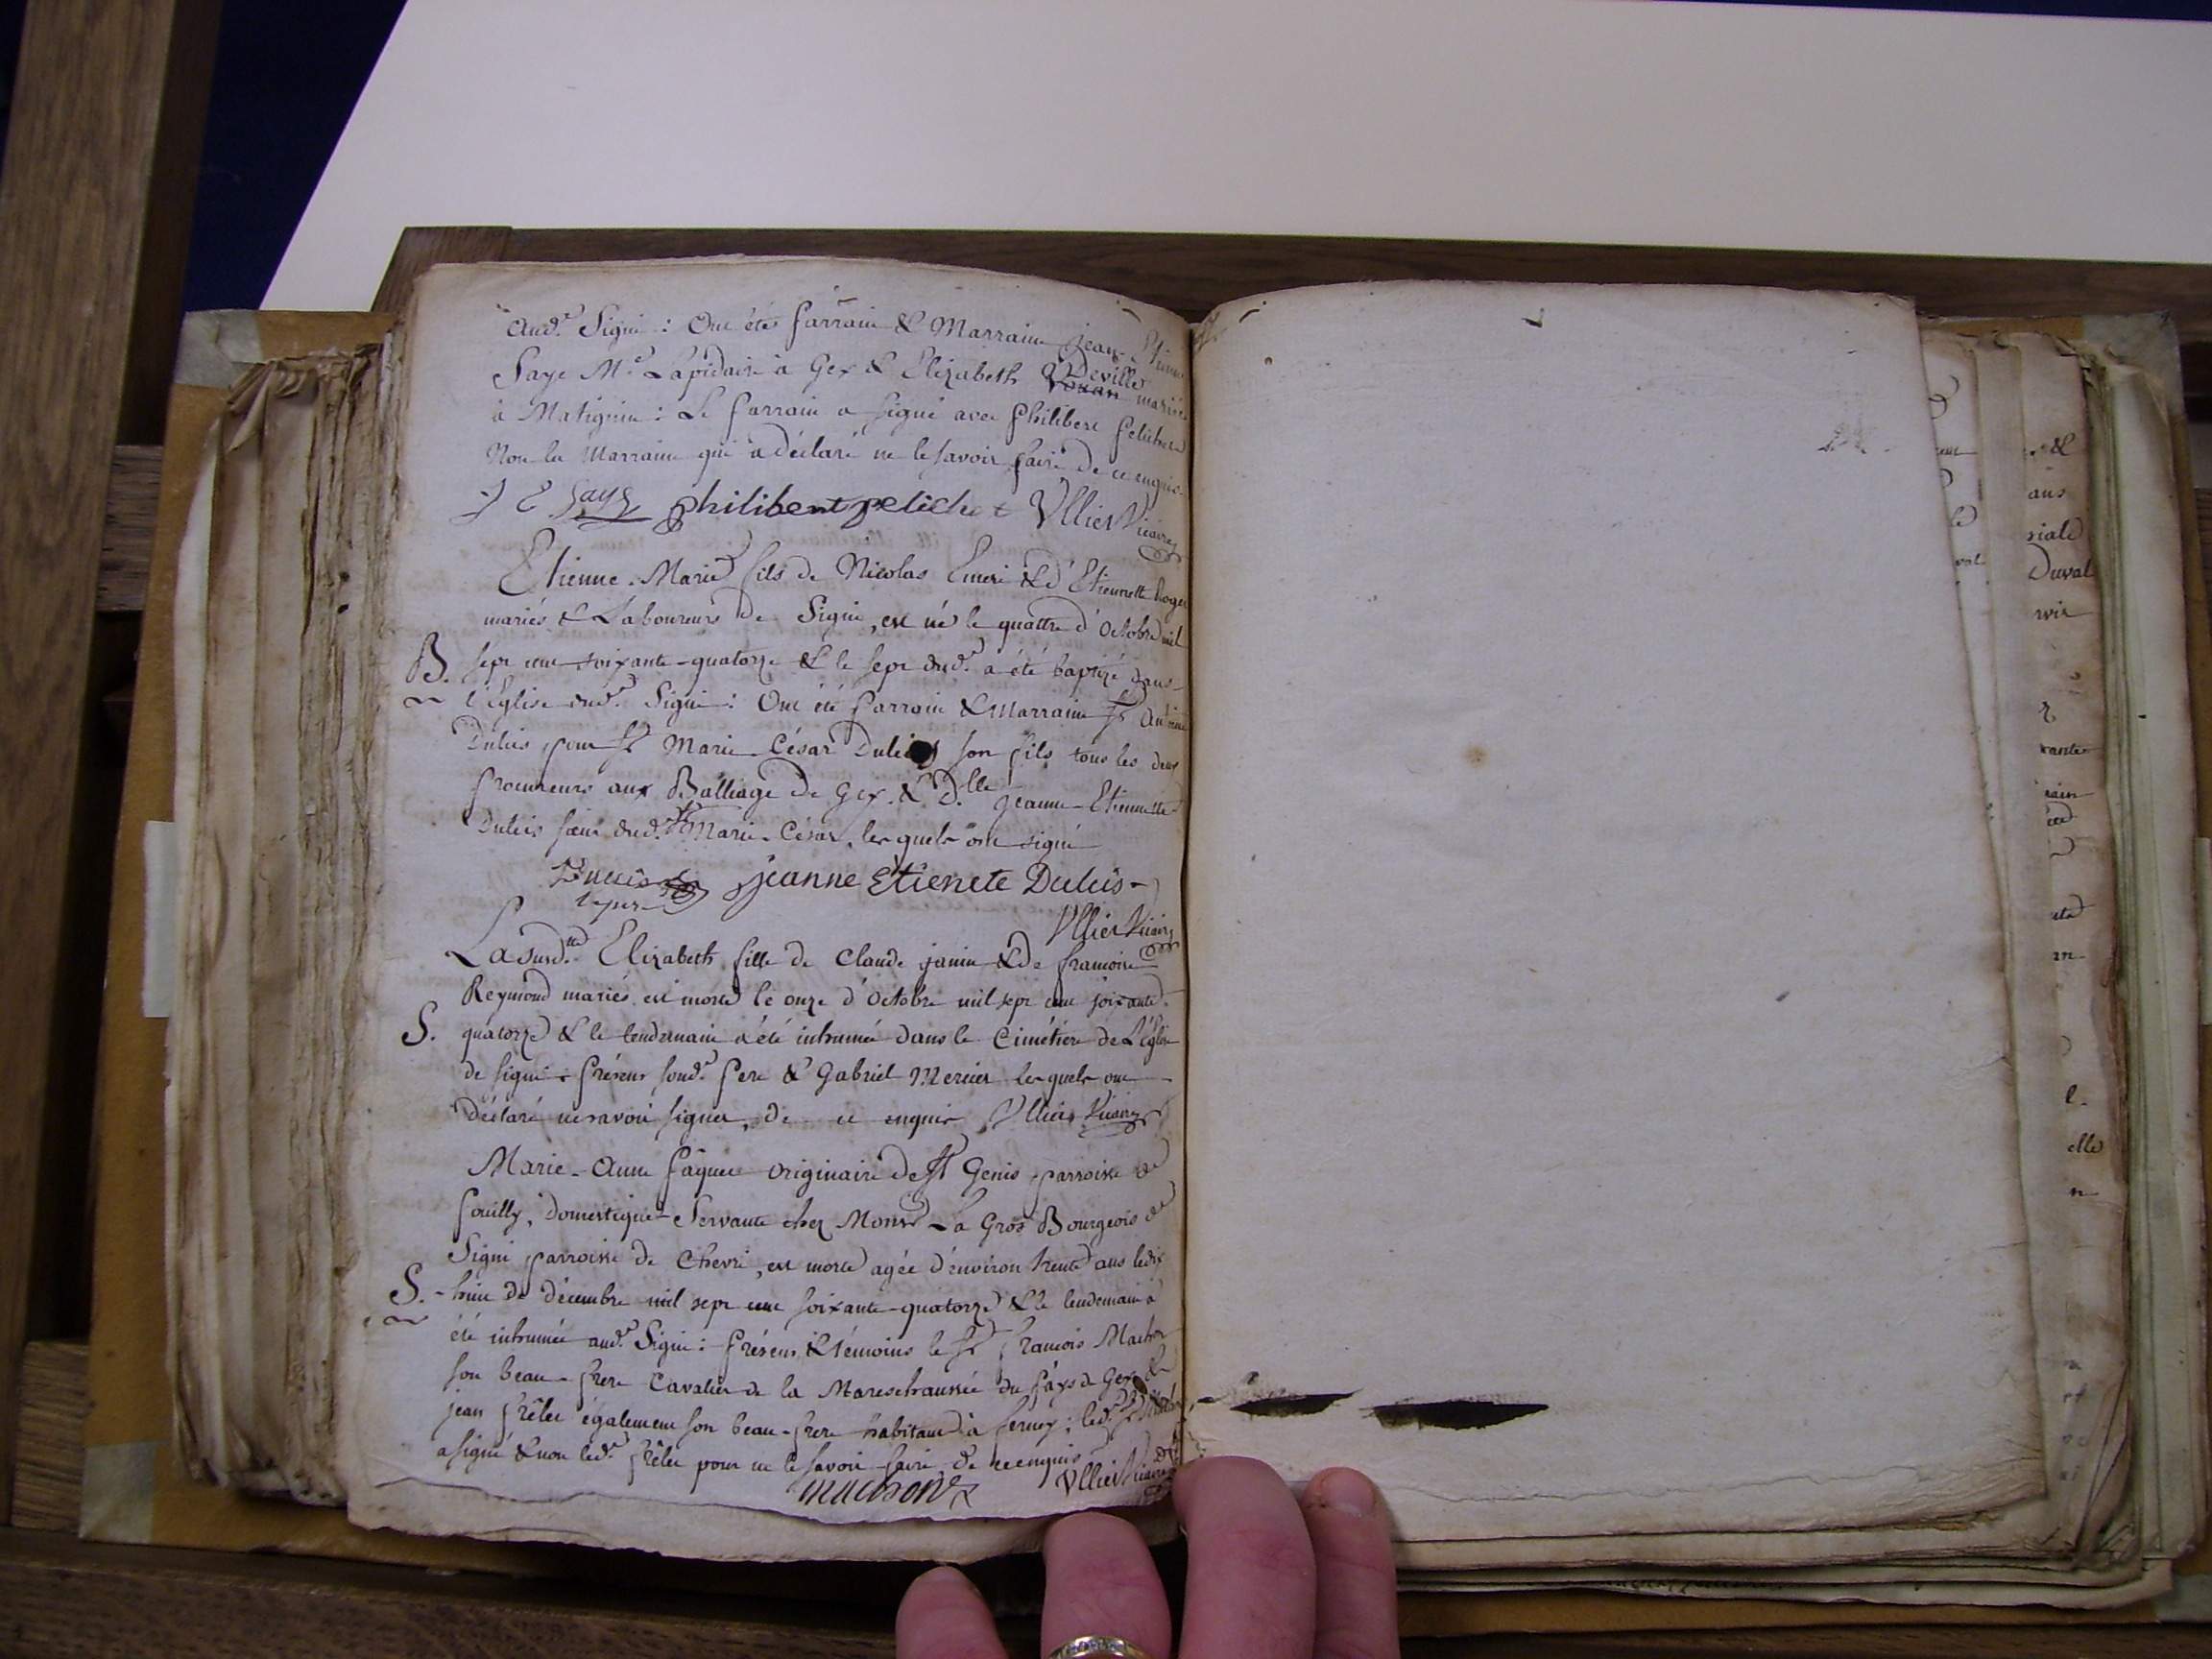 aud.t Signi : Ont étés parrain & Marraine jean-Etienne
Saye M.e Lapidaire à Gex & Elizabeth Deville mariée
à Matignin : Le parrain a signé avec philibert pelichet
Non la Marraine qui a déclaré ne le savoir faire de ce enquis.
J E Saye philibert pelichet Ullier Vicaire
Etienne-Marie fils de Nicolas Emeri & d'Etiennette Roger
mariés & Laboureurs de Signi, est né le quattre d'Octobre mil
B. sept cent soixante-quatorze & le sept dud.t a été baptizé dans
l'église dud.t Signi : Ont été parrain & Marraine Sr Antoine
Dulcis pour Sr Marie César Dulcis son fils tous les deux
procureurs aux Balliage de Gex & D.lle jeanne-Etiennette
Dulcis sœur dud.t Sr Marie-César, lesquels ont signé
Dulcis jeanne Etienete Dulcis
le père
Ullier Vicaire
La susd.tte Elizabeth fille de Claude janin & de francoise
Reymond mariés est morte le onze d'Octobre mil sept cent soixante-
S. quatorze & le lendemain a été inhumée dans le Cimétière de L'église
de signi présens sond.t pere & Gabriel Mercier lesquels ont
déclaré ne savoir signer, de ce enquis Ullier Vicaire
Marie-Anne pâquet originaire de St Genis parroisse de
pouilly, Domestique-Servante chez Monsr La Gros Bourgeois de
Signi parroisse de Chevri, est morte agée d'environ trente ans le dix
S. -huit de décembre mil sept cent soixante-quatorze & le lendemain a
été inhumée aud.t Signi : présens & témoins le Sr francois Machon
son beau-frere Cavalier de la Mareschaussée du païs de Gex &
jean frêlet également son beau-frere habitant à ferney ; led.t Sr
a signé & non led.t frêlet pour ne le savoir faire de ce enquis
machon Ullier Vicaire
& 
ans
riale
Duval